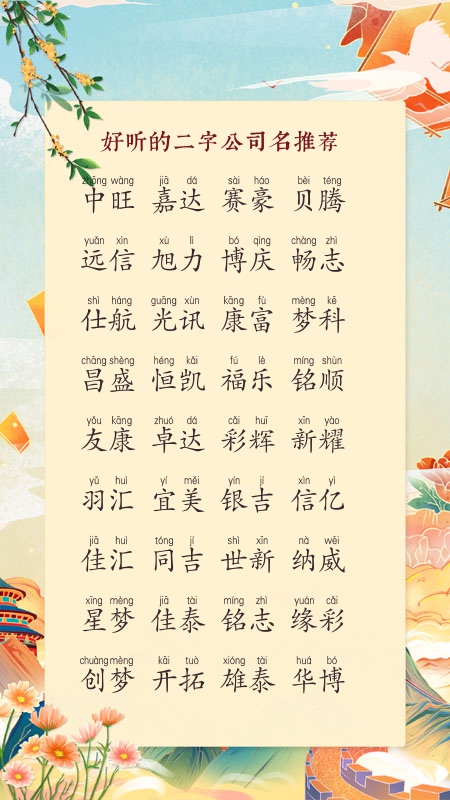 好听的二字公司名推荐
zhōng wàng jiā dá sài háo bèi téng
中旺 嘉达 赛豪 贝腾
yuǎn xìn xù lì bó qìng chàng zhì
远信 旭力 博庆 畅志
shì háng guāng xùn kāng fù mèng kē
仕航 光讯 康富 梦科
chāng shèng héng kǎi fú lè míng shùn
昌盛 恒凯 福乐 铭顺
yǒu kāng zhuó dá cǎi huī xīn yào
友康 卓达 彩辉 新耀
yǔ huì yí měi yín jí xìn yì
羽汇 宜美 银吉 信亿
jiā huì tóng jí shì xīn nà wēi
佳汇 同吉 世新 纳威
xīng mèng jiā tài míng zhì yuán cǎi
星梦 佳泰 铭志 缘彩
chuàng mèng kāi tuò xióng tài huá bó
创梦 开拓 雄泰 华博